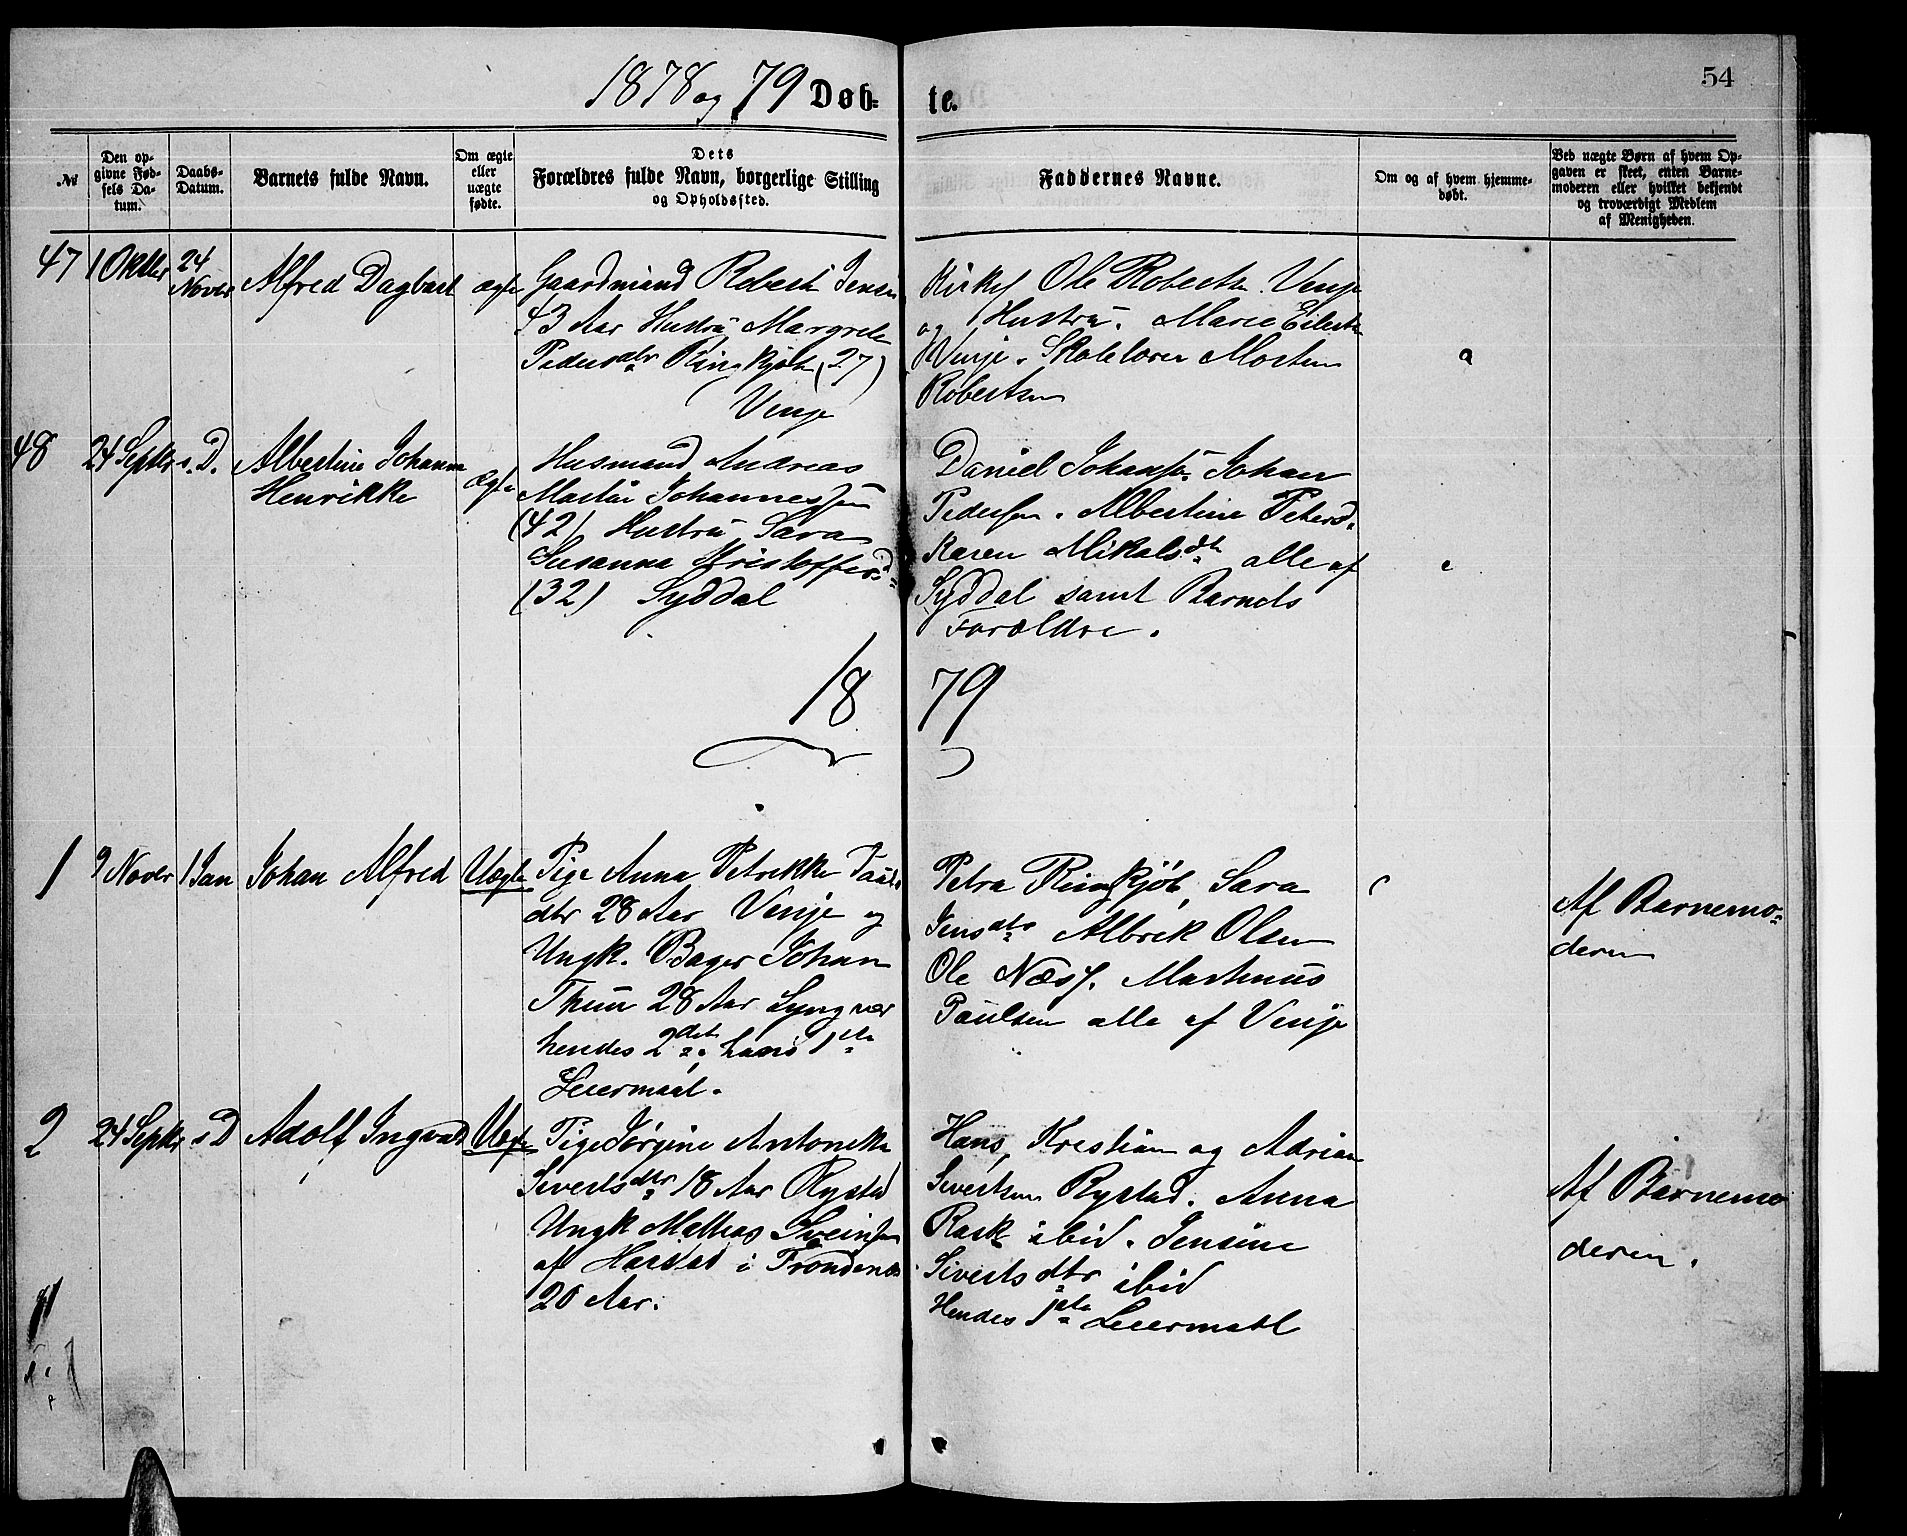 1878 og 79 Døb= te.
54
No
Den op-
givne Fød-
sels Da-
tum.
Daabs-
Datum.
Barnets fulde Navn.
Om ægte
eller
uægte
fødte.
Dets
Forældres fulde Navn, borgerlige Stilling
og Opholdssted.
Faddernes Navne.
Om og af hvem hjemme-
døbt.
Ved uægte Børn af hvem Op-
gaven er skeet, enten Barne-
moderen eller hvilket bekjendt
og troværdigt Medlem
af Menigheden.
47
1 Oktbr
24
Novbr
Alfred Dagbart
ægte
Gaardmand Robert Jensen
43 Aar Hustru Margrete
Pedersdtr Ringkjøb (27)
Venje
Kirkes. Ole Roberts. Venje
og Hustru. Marie Eilerts.
Venje. Skolelærer Morten
Robertsen
48
24 Septbr
s. D.
Albertine Johanna
Henrikke
Ægte
Husmand Andreas
Martin Johannessen
(42) Hustru Sara
Susanna Kristoffersd.
(32) Syddal
Daniel Johans. Johan
Pedersen. Albertine Petersd.
Karen Mikalsdtr alle af
Syddal samt Barnets
Forældre.
18 79
1
9 Novbr
1 Jan
Johan Alfred
Uægte
Pige Anna Petrikke Pauls-
dtr 28 Aar Venje og
Ungk. Bager Johan
Thuu 28 Aar Lyngvær
hendes 2det, hans 1ste
Leiermaal.
Petra Ringkjøb, Sara
Jensdtr Albrik Olsen
Ole Næss. Martinus
Paulsen alle af Venje
Af Barnemo=
deren
2
24 Septbr
s D
Adolf Ingvald
Uægte
Pige Jørgine Antonette
Sivertsdtr 18 Aar Rystad
Ungk Mathias Sveinsen
af Harstad i Trondenæs
20 Aar.
Hans, Kristian og Adrian
Sivertsen Rystad. Anna
Rask ibid. Jensine
Sivertsdtr ibid
Hendes 1ste Leiermaal
Af Barnemo
deren.